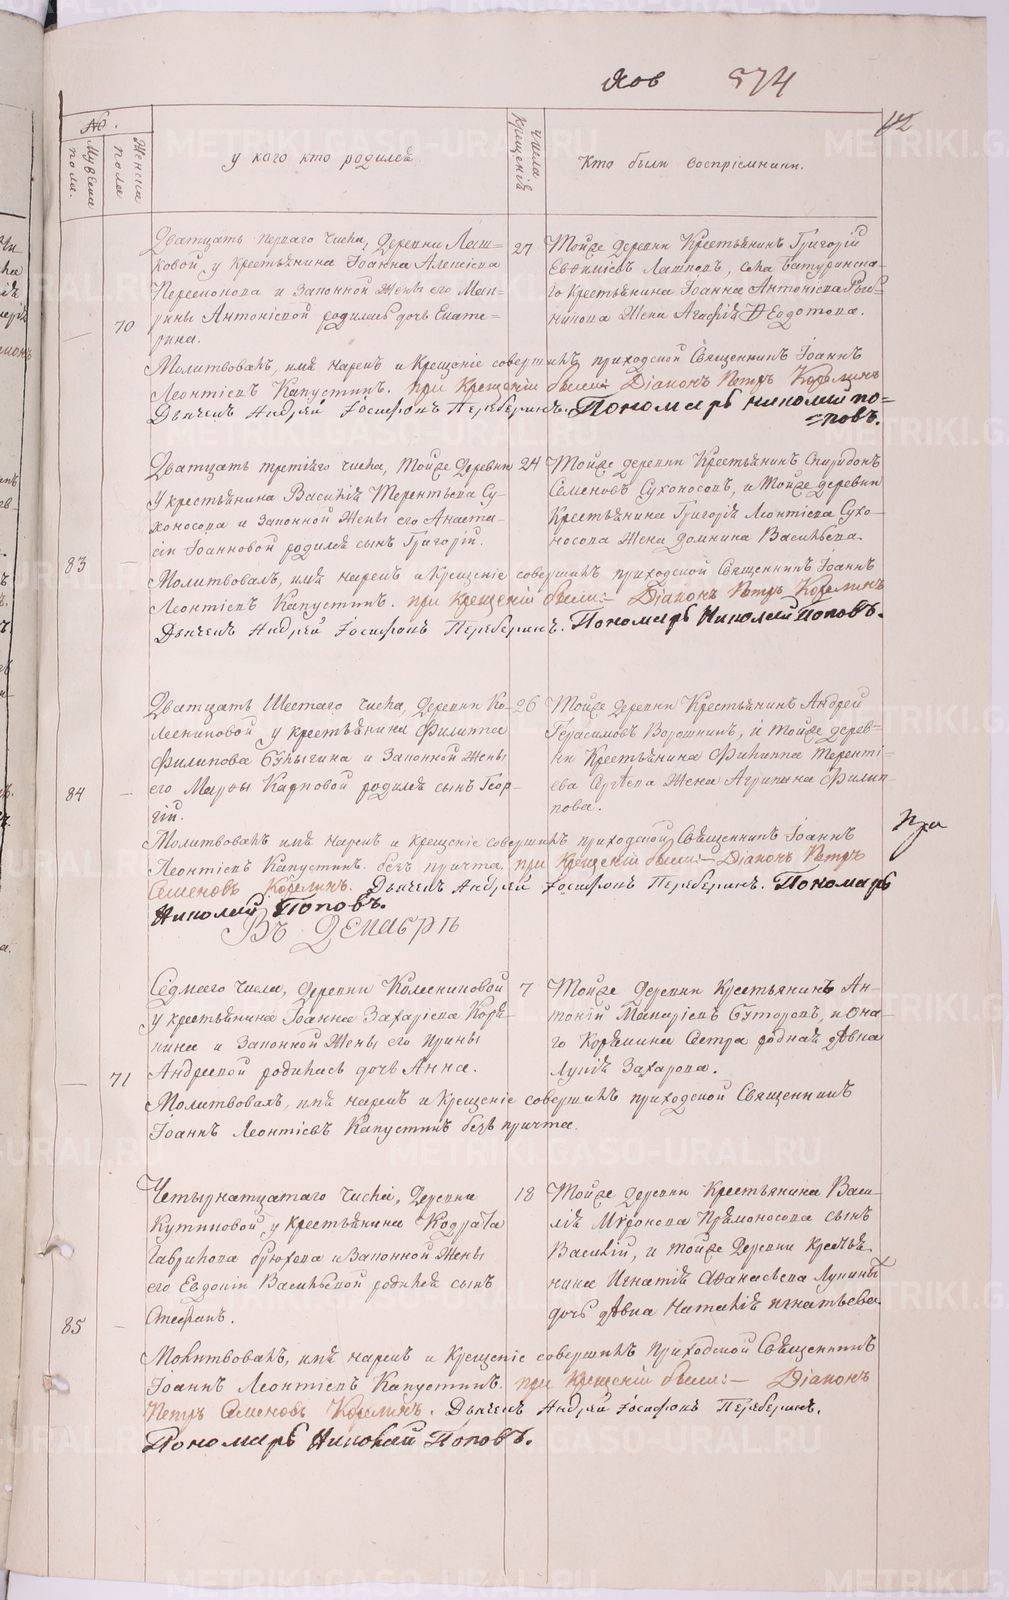 Яов 574
42
№.
Мужеска пола.
Женска пола
у кого кто родился
числа крещенія
Кто были воспріемники.
70
Дватцать перваго числа, Деревни Лаш-
ковой у крестьянина Іоанна Алексіева
и Законной жены его Мав-
рины Антоніевой родилась дочь Екате-
рина.
27
Тойже деревни Крестьянинъ Григорій
Евфиміевъ Лашковъ, села Батуринска-
го крестьянина Іоанна Антоніева
жена Агафія Ѳедотова.
Молитвовалъ, имя нарекъ и Крещеніе совершилъ приходской Священникъ Іоаннъ
Леонтіевъ Капустинъ. при Крещеніи были: Діаконъ Петръ Корелинъ
Дьячекъ Андрей Іосифовъ Переберинъ. Пономарь Николай По-
повъ.
83
Дватцать третіяго числа, Тойже деревни
У крестьянина Василія Терентьева Су-
хоносова и Законной жены его Анаста-
сіи Іоанновой родился сынъ Григорій.
24
Тойже деревни Крестьянинъ Спиридонъ
Семеновъ Сухоносовъ, и тойже деревни
Крестьянина Григорія Леонтіева Сухо-
носова жена Домнина Васильева.
Молитвовалъ, имя нарекъ и Крещеніе совершилъ приходской Священникъ Іоаннъ
Леонтіевъ Капустинъ. при Крещеніи были:- Діаконъ Петръ Корелинъ
Дьячекъ Андрей Іосифовъ Переберинъ. Пономарь Николай Поповъ.
84
Дватцать Шестаго числа, деревни Ко-
лесниковой у крестьянина Филиппа
Филипова Булыгина и Законной жены
его Марѳы Карповой родился сынъ Геор-
гій.
26
Тойже деревни Крестьянинъ Андрей
Герасимовъ Ворошнинъ, и тойже дерев-
ни Крестьянина Филиппа Теренті-
ева Сергѣева жена Агрипина Филип-
пова.
Молитвовалъ имя нарекъ и крещеніе совершилъ приходской Священникъ Іоаннъ
Леонтіевъ Капустинъ. безъ причта. при Крещеніи были:- Діаконъ Петръ
Семеновъ Корелинъ. Дьячекъ Андрей Іосифовъ Переберинъ. Пономарь
Николай Поповъ.
при
Въ Декабрѣ
71
Седмаго числа, Деревни Колесниковой
у крестьянина Іоанна Захаріева Коря-
кина и Законной жены его Ирины
Андреевой родилась дочь Анна.
7
Тойже деревни Крестьянинъ Ан-
тоній Макаріевъ Буторовъ, и она-
го Корякина Сестра родная дѣвка
Лукія Захарова.
Молитвовалъ, имя нарекъ и крещеніе совершилъ приходской Священникъ
Іоаннъ Леонтіевъ Капустинъ безъ причта.
85
Четырнатцатаго числа, Деревни
Кутиковой у крестьянина Кодрата
Гаврилова Брюхова и Законной жены
его Евдокіи Васильевой родился сынъ
Стефанъ.
18
Тойже деревни Крестьянина Васи-
лія Муронова Прямоносова сынъ
Василій, и тойже Деревни Крестья-
нина Игнатія Аѳанасьева Лукины
дочь дѣвка Наталія Игнатьева.
Молитвовалъ, имя нарекъ и Крещеніе совершилъ приходской Священникъ
Іоаннъ Леонтіевъ Капустинъ. при Крещеніи были:- Діаконъ
Петръ Семеновъ Корелинъ. Дьячекъ Андрей Іосифовъ Переберинъ.
Пономарь Николай Поповъ.